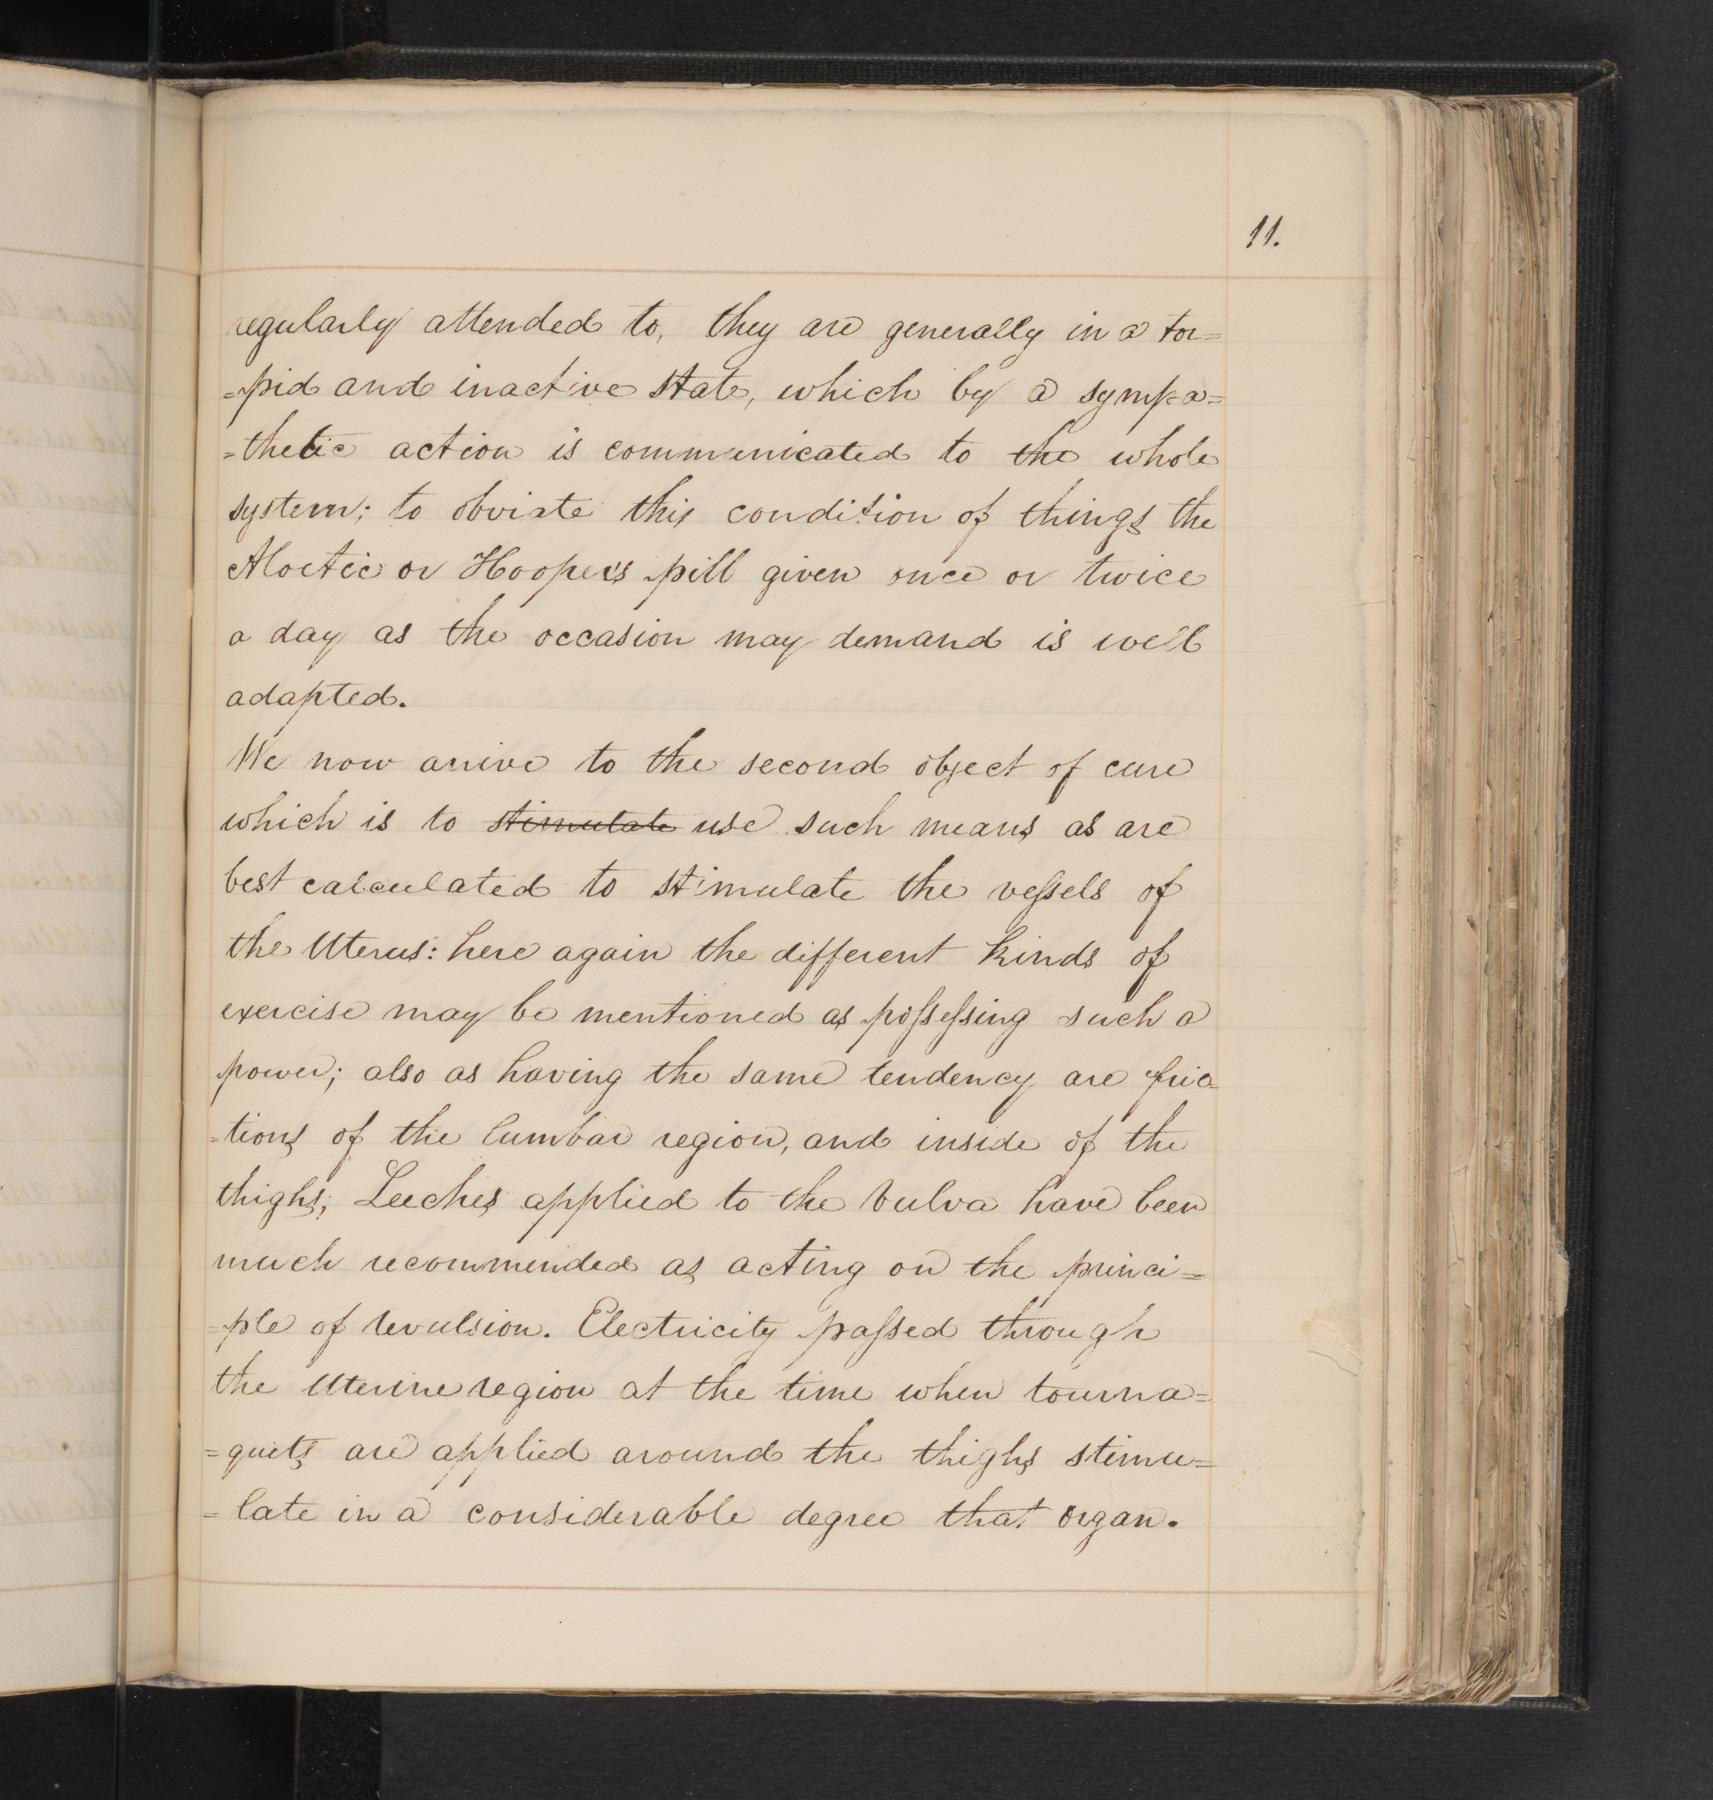 11.
regularly attended to, they are generally in a tor=
=pid and inactive state, which by a sympa=
=thetic action is communicated to the whole
system; to obviate this condition of things the
Aloetic or Hoopers pill given once or twice
a day as the occasion may demand is well
adapted.
We now arrive to the second object of cure
which is to stimulate use such means as are
best calculated to stimulate the vessels of
the Uterus: here again the different kinds of
exercise may be mentioned as possessing such a
power; also as having the same tendency are fric
=tions of the lumbar region, and inside of the
thighs; Leeches applied to the Vulva have been
much recommended as acting on the princi=
=ple of revulsion. Electricity passed through
the Uterine region at the time when tourna=
=quets are applied around the thighs stimu=
=late in a considerable degree that organ.